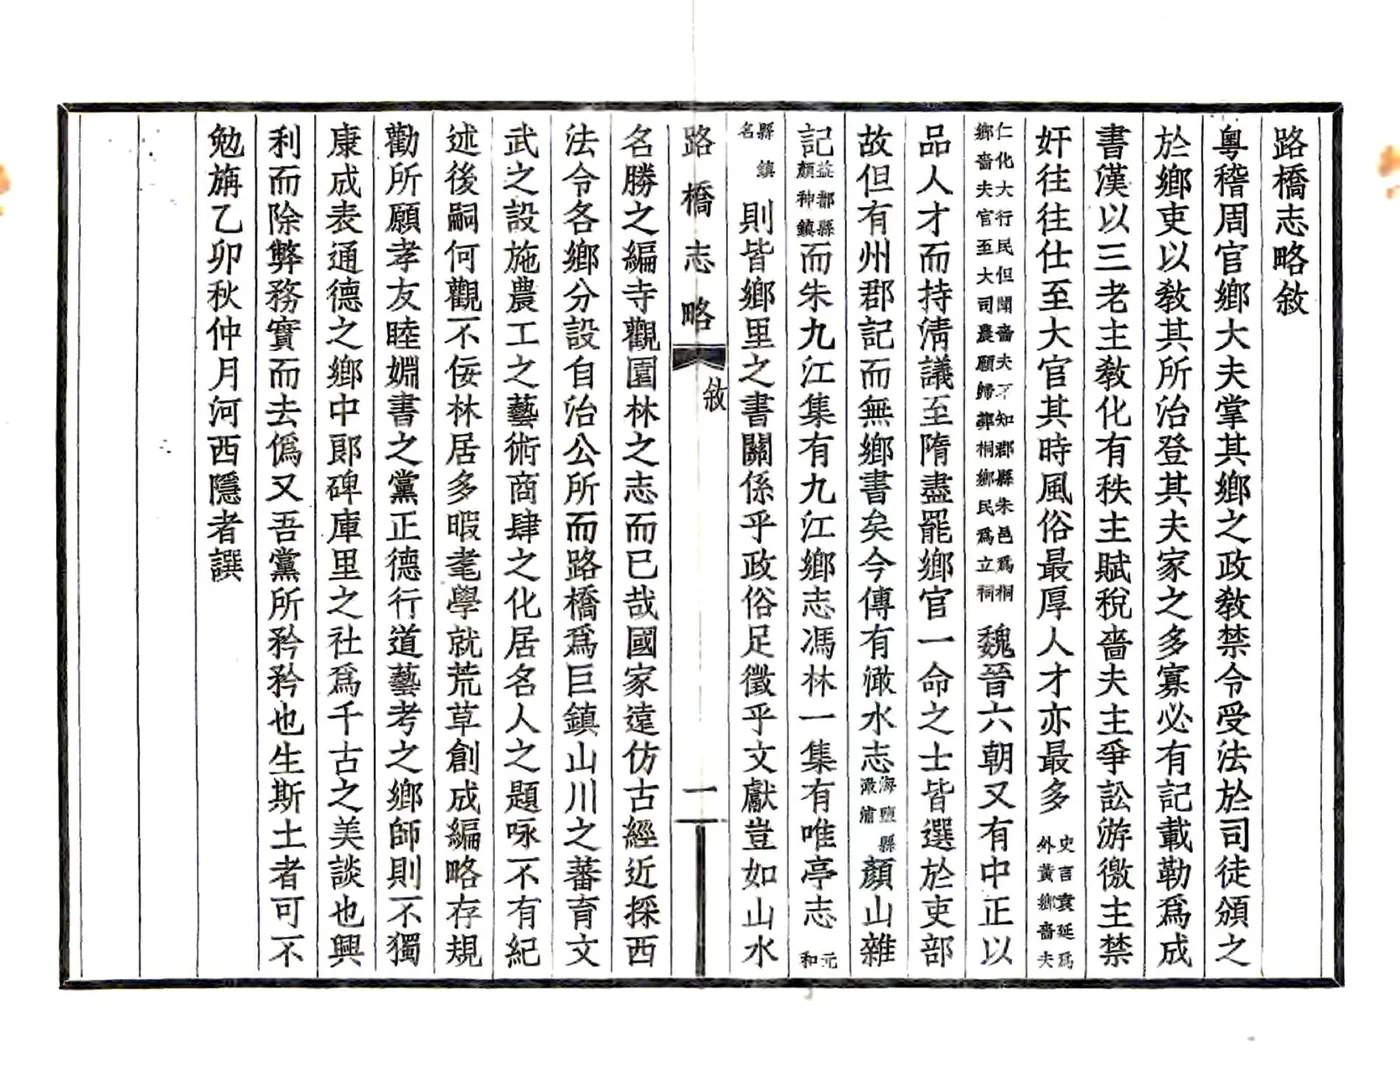 路橋志略敘
粵稽周官鄉大夫掌其鄉之政敎禁令受法於司徒頒之
於鄉吏以敎其所治登其夫家之多寡必有記載勒爲成
書漢以三老主敎化有秩主賦稅嗇夫主爭訟游徼主禁
奸往往仕至大官其時風俗最厚人才亦最多史言袁延爲外黃鄉嗇夫
仁化大行民但聞嗇夫不知郡縣朱邑爲桐鄉嗇夫官至大司農願歸葬桐鄉民爲立祠魏晉六朝又有中正以
品人才而持淸議至隋盡罷鄉官一命之士皆選於吏部
故但有州郡記而無鄉書矣今傳有澉水志海鹽縣澉浦顏山雜
記益都縣顏神鎭而朱九江集有九江鄉志馮林一集有唯亭志元和
縣鎭名則皆鄉里之書關係乎政俗足徵乎文獻豈如山水
路橋志略
敘
一
名勝之編寺觀園林之志而已哉國家遠仿古經近採西
法令各鄉分設自治公所而路橋爲巨鎭山川之蕃育文
武之設施農工之藝術商肆之化居名人之題咏不有紀
述後嗣何觀不佞林居多暇耄學就荒草創成編略存規
勸所願孝友睦婣書之黨正德行道藝考之鄉師則不獨
康成表通德之鄉中郎碑庫里之社爲千古之美談也興
利而除弊務實而去僞又吾黨所矜矜也生斯土者可不
勉旃乙卯秋仲月河西隱者譔